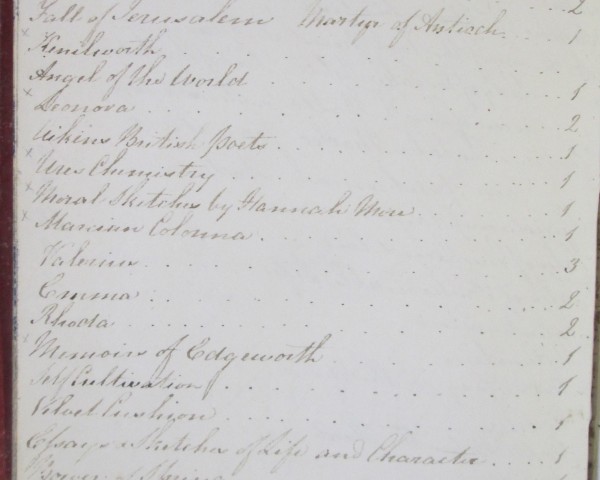 Fall of Jerusalem Martyr of Antioch . . . 1
x Kenilworth . . . . . . . . .
Angel of the World . . . . . . . 1
x Leonora . . . . . . . . . . 2
Aikins British Poets . . . . . . . 1
x Ures Chemistry . . . . . . . . 1
x Moral Sketches by Hannah More . . . . 1
x Marcian Colonna . . . . . . . . 1
Valerius . . . . . . . . . . 3
Emma . . . . . . . . . . 2
Rhoda . . . . . . . . . . 2
x Memoirs of Edgeworth . . . . . . 1
Self Cultivation . . . . . . . . 1
Velvet Cushion . . . . . . . . 1
Essays & Sketches of Life and Character . . . . 1